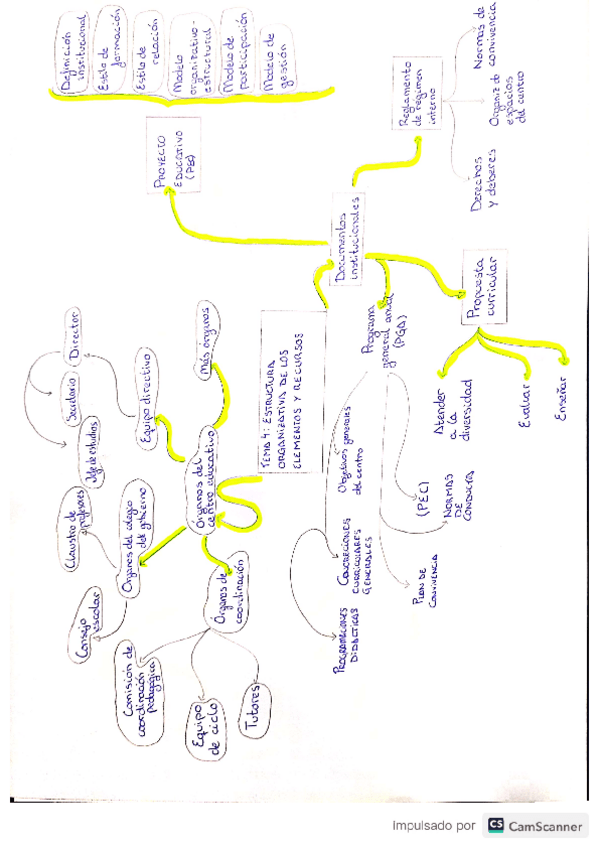 TEMA 4: ESTRUCTURA
ORGANIZATIVA DE LOS
ELEMENTOS Y RECURSOS
Órganos del
centro educativo
Más órganos
Equipo directivo
Director
Secretario
Jefe de estudios
Órganos del colegio
del gobierno
Claustro de
profesores
Consejo
escolar
Órganos de
coordinación
Comisión de
coordinación
pedagógica
Equipo
de ciclo
Tutores
Documentos
institucionales
PROYECTO
EDUCATIVO
(PEC)
Definición
institucional
Estilo de
formación
Estilo de
relación
Modelo
organizativo-
estructural
Modelo de
participación
Modelo de
gestión
Reglamento
de régimen
interno
Normas de
convivencia
Organiz. de
espacios
del centro
Derechos
y deberes
Propuesta
curricular
Atender
a la
diversidad
Evaluar
Enseñar
Programa
general anual
(PGA)
Objetivos generales
del centro
CONCRECIONES
CURRICULARES
GENERALES
PROGRAMACIONES
DIDÁCTICAS
(PEC)
NORMAS
DE
CONDUCTA
PLAN DE
CONVIVENCIA
Impulsado por CS CamScanner